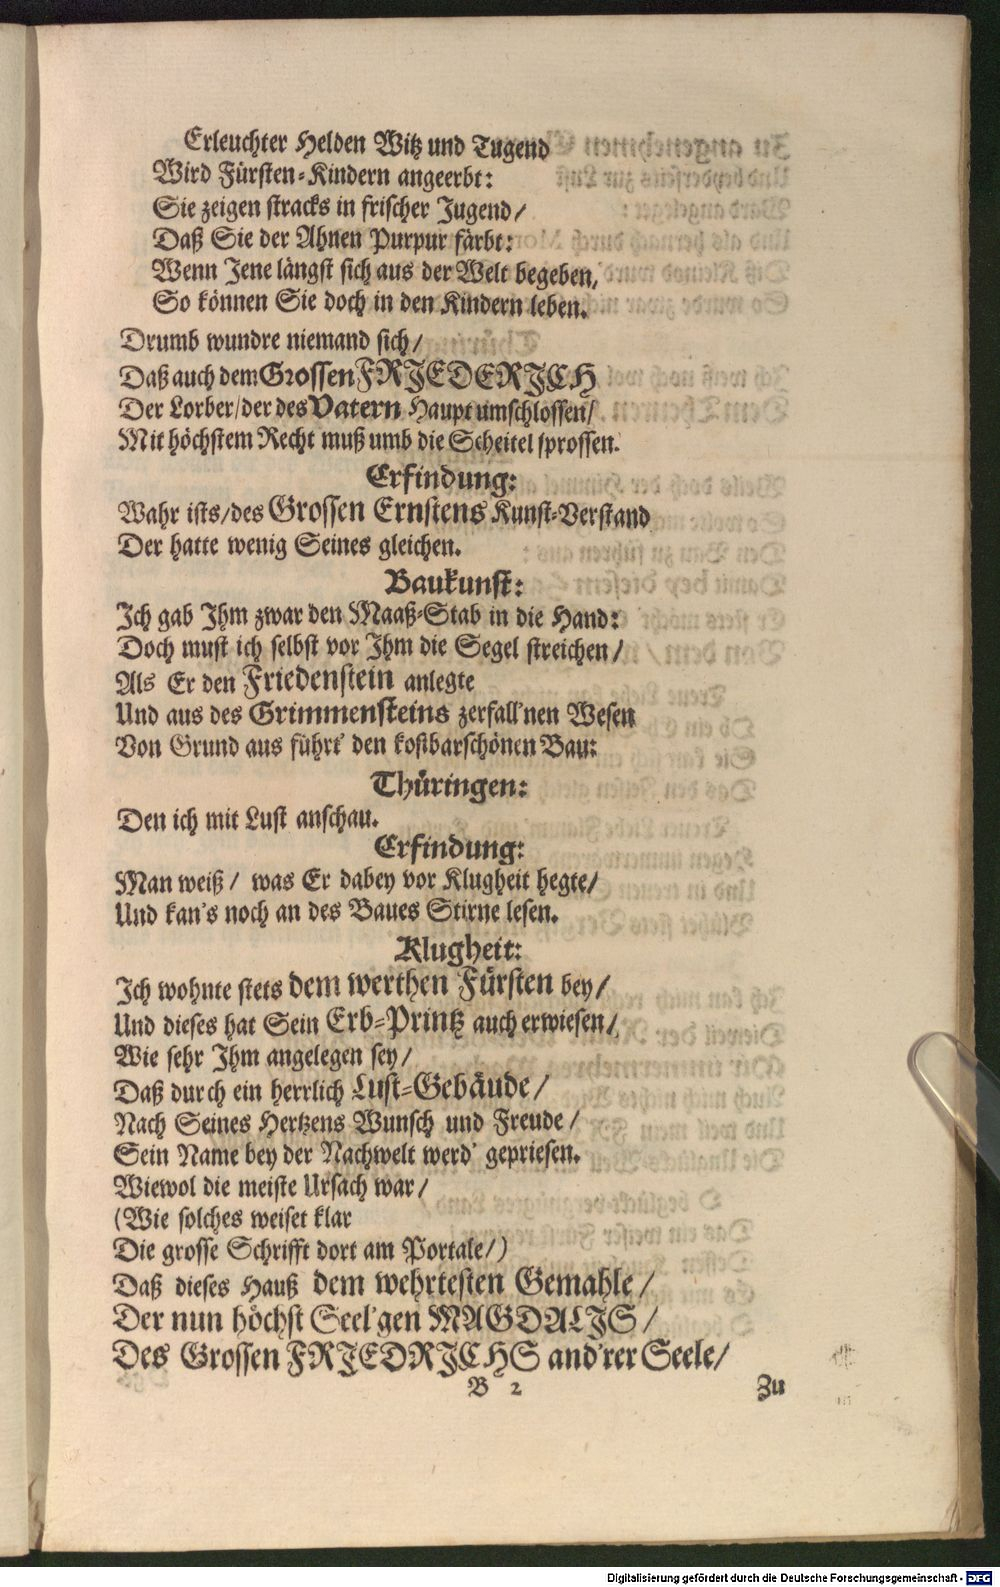 Erleuchter Helden Witz und Tugend
Wird Fürsten-Kindern angeerbt:
Sie zeigen stracks in frischer Jugend/
Daß Sie der Ahnen Purpur färbt:
Wenn Jene längst sich aus der Welt begeben,
So können Sie doch in den Kindern leben.
Drumb wundre niemand sich/
Daß auch dem Grossen FRIEDERICH
Der Lorber/der des Vatern Haupt umschlossen/
Mit höchstem Recht muß umb die Scheitel sprossen.
Erfindung:
Wahr ists/des Grossen Ernstens Kunst-Verstand
Der hatte wenig Seines gleichen.
Baukunst:
Ich gab Ihm zwar den Maaß-Stab in die Hand:
Doch must ich selbst vor Ihm die Segel streichen/
Als Er den Friedenstein anlegte
Und aus des Grimmensteins zerfall'nen Wesen
Von Grund aus führt' den kostbarschönen Bau:
Thüringen:
Den ich mit Lust anschau.
Erfindung:
Man weiß/ was Er dabey vor Klugheit hegte/
Und kan's noch an des Baues Stirne lesen.
Klugheit:
Ich wohnte stets dem werthen Fürsten bey/
Und dieses hat Sein Erb-Printz auch erwiesen/
Wie sehr Ihm angelegen sey/
Daß durch ein herrlich Lust-Gebäude/
Nach Seines Hertzens Wunsch und Freude/
Sein Name bey der Nachwelt werd' gepriesen.
Wiewol die meiste Ursach war/
(Wie solches weiset klar
Die grosse Schrifft dort am Portale/)
Daß dieses Hauß dem wehrtesten Gemahle/
Der nun höchst Seel'gen MAGDALIS/
Des Grossen FRIEDRICHS and'rer Seele/
B 2
Zu
Digitalisierung gefördert durch die Deutsche Forschungsgemeinschaft - DFG